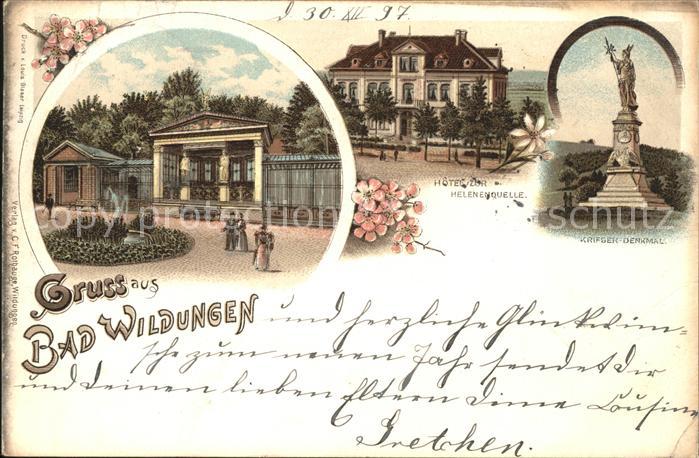 d 30. XII 97.
Druck v. Louis Glaser Leipzig
Verlag v. C. F. Rothauge, Wildungen.
HÔTEL ZUR
HELENENQUELLE.
KRIEGER-DENKMAL.
copyright protection / urheberrechtsschutz
Gruss aus
BAD WILDUNGEN
und herzliche Glückwün-
sche zum neuen Jahr sendet Dir
und deinen lieben Eltern Deine Cousine
Gretchen.